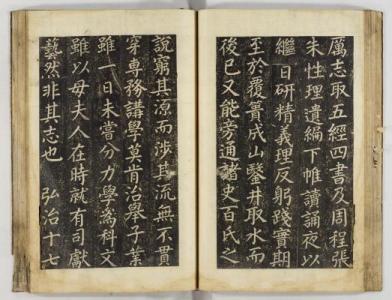 厲志取五經四書及周程張
朱性理遺編下帷讀誦夜以
繼日研精義理反躬踐實期
至於覆簣成山鑿井取水而
後已又能旁通諸史百氏之
說窮其源而涉其流無不貫
穿專務講學莫肯治舉子業
雖一日未嘗分力學為科文
雖以母夫人在時就有司獻
藝然非其志也 弘治十七